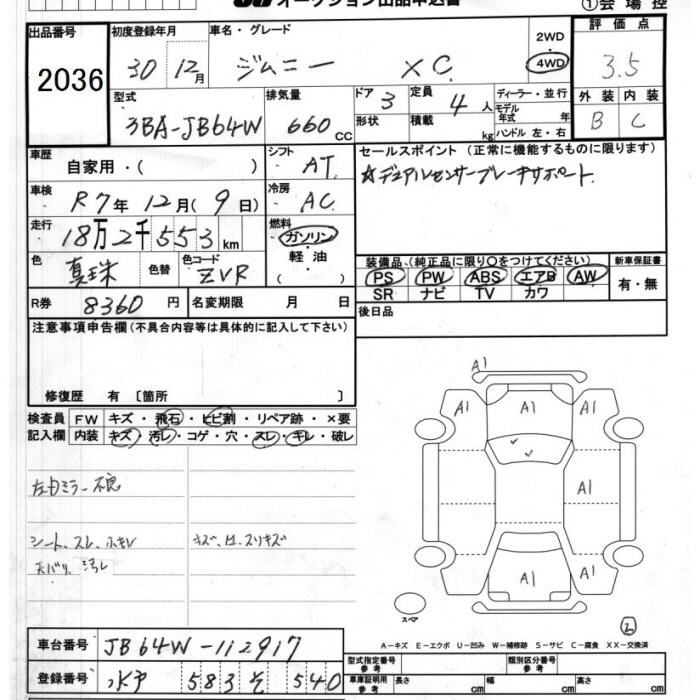 オークション出品申込書
①会場控
出品番号 初度登録年月 車名・グレード 2WD 評価点
2036 30 12月 ジムニー XC 4WD 3.5
型式 排気量 ドア 3 定員 4 人 ディーラー・並行 外装 内装
モデル年式 年
3BA-JB64W 660 cc 形状 積載 kg ハンドル 左・右 B C
車歴 自家用・( ) シフト AT セールスポイント (正常に機能するものに限ります)
☆デュアルセンサーブレーキサポート
車検 R7年12月(9日) 冷房 AC
走行 18万2千553km 燃料 ガソリン
軽油
( )
色 真珠 色替 色コード ZVR
装備品、(純正品に限り〇をつけてください) 新車保証書
PS PW ABS エアB AW 有・無
SR ナビ TV カワ
R券 8360円 名変期限 月 日
後日品
注意事項申告欄(不具合内容等は具体的に記入して下さい)
修復歴 有 〔箇所 〕
検査員 FW キズ・飛石・ヒビ割・リペア跡・×要
記入欄 内装 キズ・汚レ・コゲ・穴・スレ・キレ・破レ
左右ミラー不良
シート、スレ、小キレ キズ、凹、スリキズ
天バリ、汚レ
A1
A1 A1 A1
A1
A1 A1
スペア
②
A-キズ E-エクボ U-凹み W-補修跡 S-サビ C-腐食 XX-交換済
車台番号 JB64W-112917
登録番号 水戸 583 そ 540
型式指定番号 参考 類別区分番号 参考
車庫証明用 参考 長さ cm 幅 cm 高さ cm